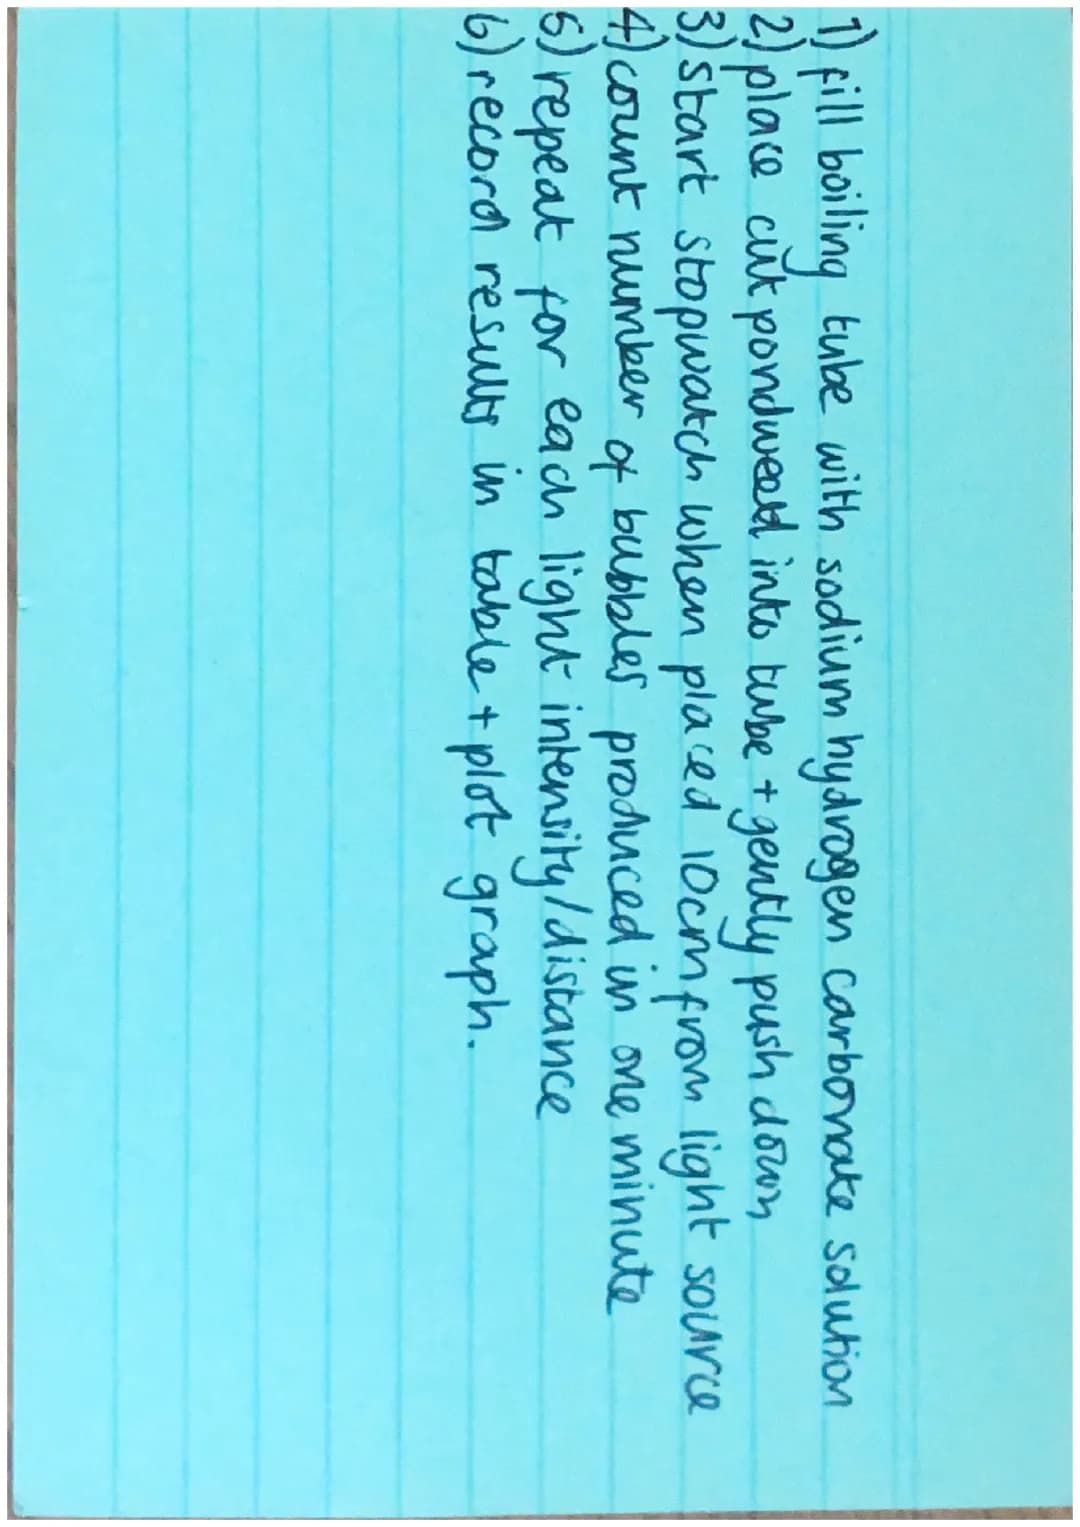 1) fill boiling tube with sodium hydrogen carbonate solution
2) place cut pondweed into tube + gently push down
3) start stopwatch when placed 10cm from light source
4) count number of bubbles produced in one minute
5) repeat for each light intensity/distance
6) record results in table + plot graph.